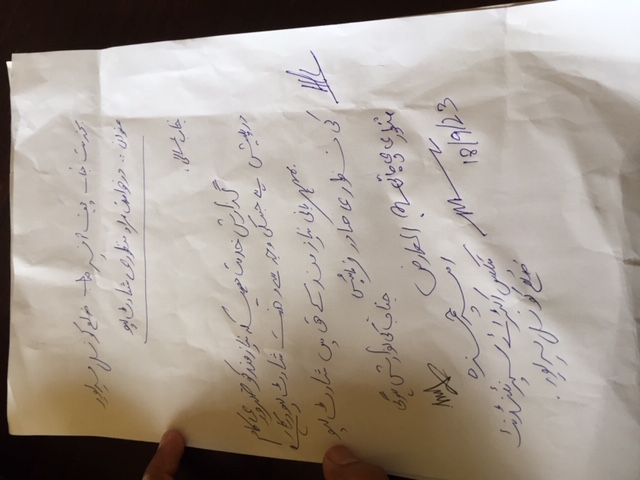 بخدمت جناب چیف آفیسر صاحب ضلع کونسل میرپور
عنوان :۔ درخواست مراد منظوری شارٹ لیو
جناب عالی!
گذارش خدمت ہیکہ نیاز مند کو ضروری کام
درپیش ہے جسکی وجہ سے شارٹ لیو درکار ہے
بمہربانی نیاز مند کے حق میں شارٹ لیو
کی منظوری صادر فرمائیں
جناب کی نوازش ہوگی
منظوری دی جاتی ہے
العارض
امیر حمزہ
18/9/23
ٹیکس سپرنٹنڈنٹ
ضلع کونسل میرپور۔